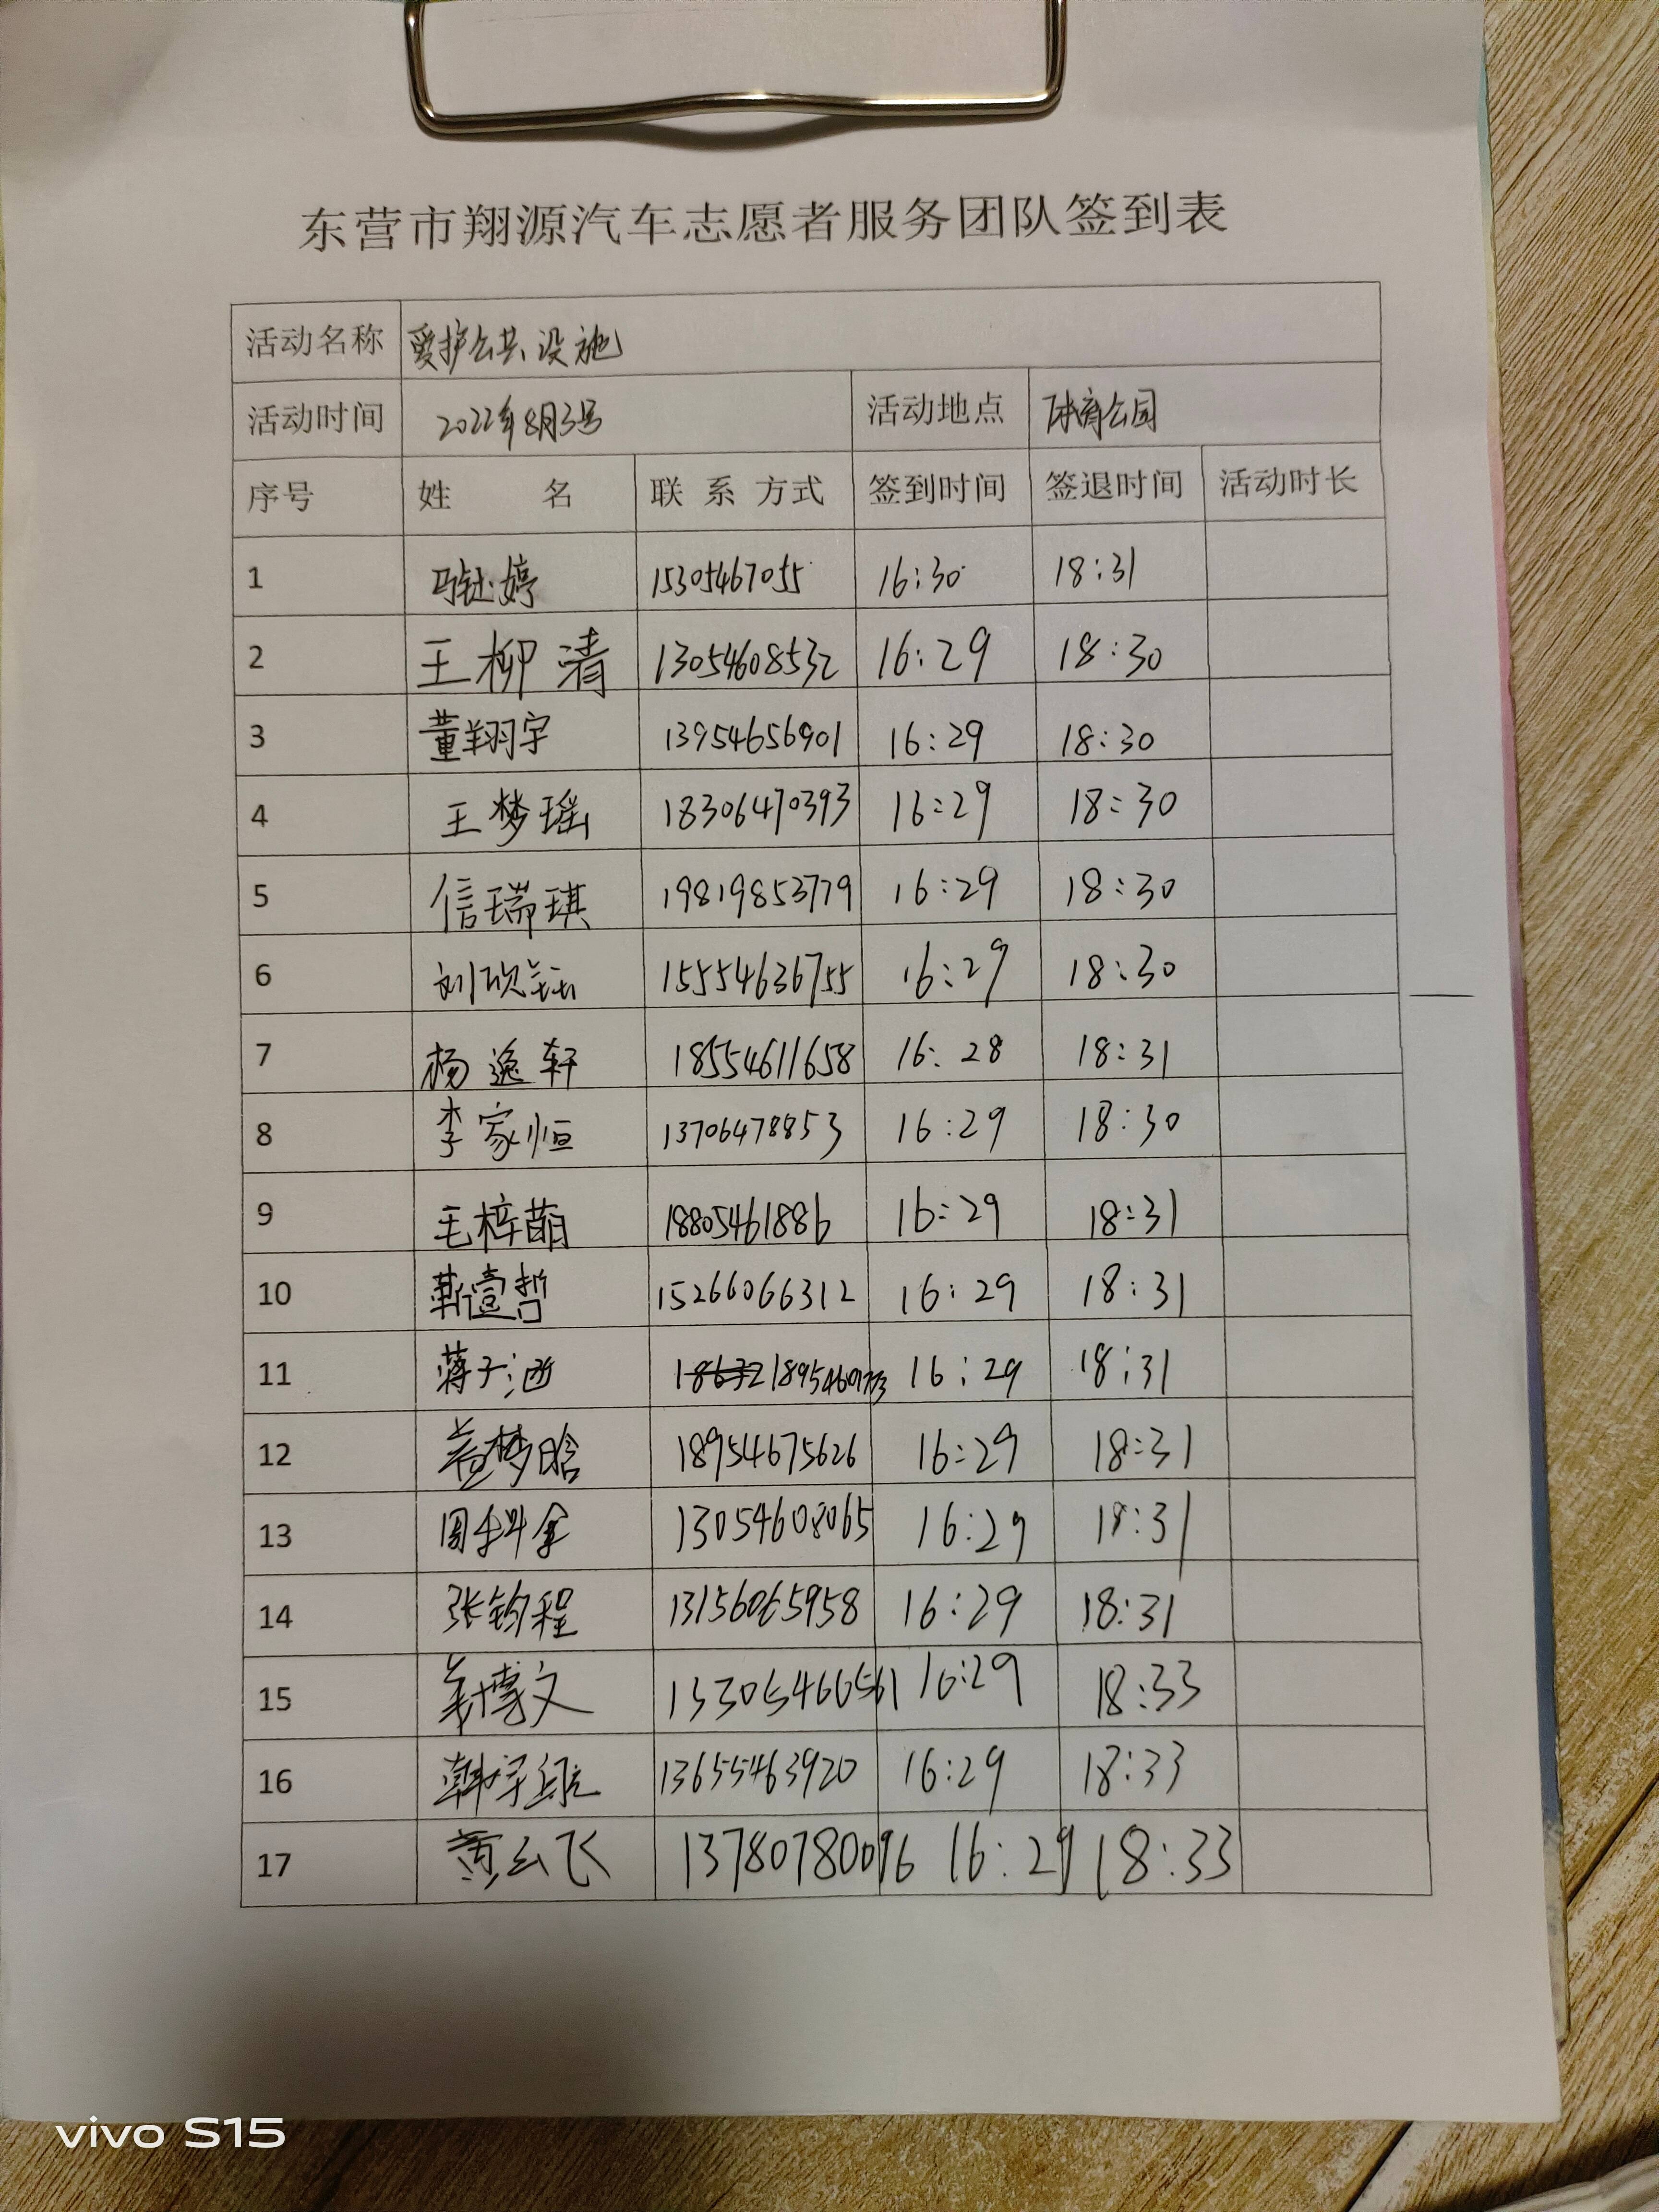 东营市翔源汽车志愿者服务团队签到表
活动名称 爱护公共设施
活动时间 2022年8月3号 活动地点 体育公园
序号 姓 名 联 系 方式 签到时间 签退时间 活动时长
1 马钰婷 15305467055 16:30 18:31
2 王柳清 13054608532 16:29 18:30
3 董翔宇 13954656901 16:29 18:30
4 王梦瑶 18306470393 16:29 18:30
5 信瑞琪 19819853779 16:29 18:30
6 刘欣钰 15554636755 16:29 18:30
7 杨逸轩 18554611658 16:28 18:31
8 李家恒 13706478853 16:29 18:30
9 毛梓萌 18805461886 16:29 18:31
10 靳壹哲 15266066312 16:29 18:31
11 蒋子涵 16:29 18:31
12 盖梦晗 18954675626 16:29 18:31
13 13054608065 16:29 18:31
14 张钧程 13156065958 16:29 18:31
15 姜博文 16:29 18:33
16 韩宇航 13655463920 16:29 18:33
17 黄云飞 13780780096 16:29 18:33
vivo S15